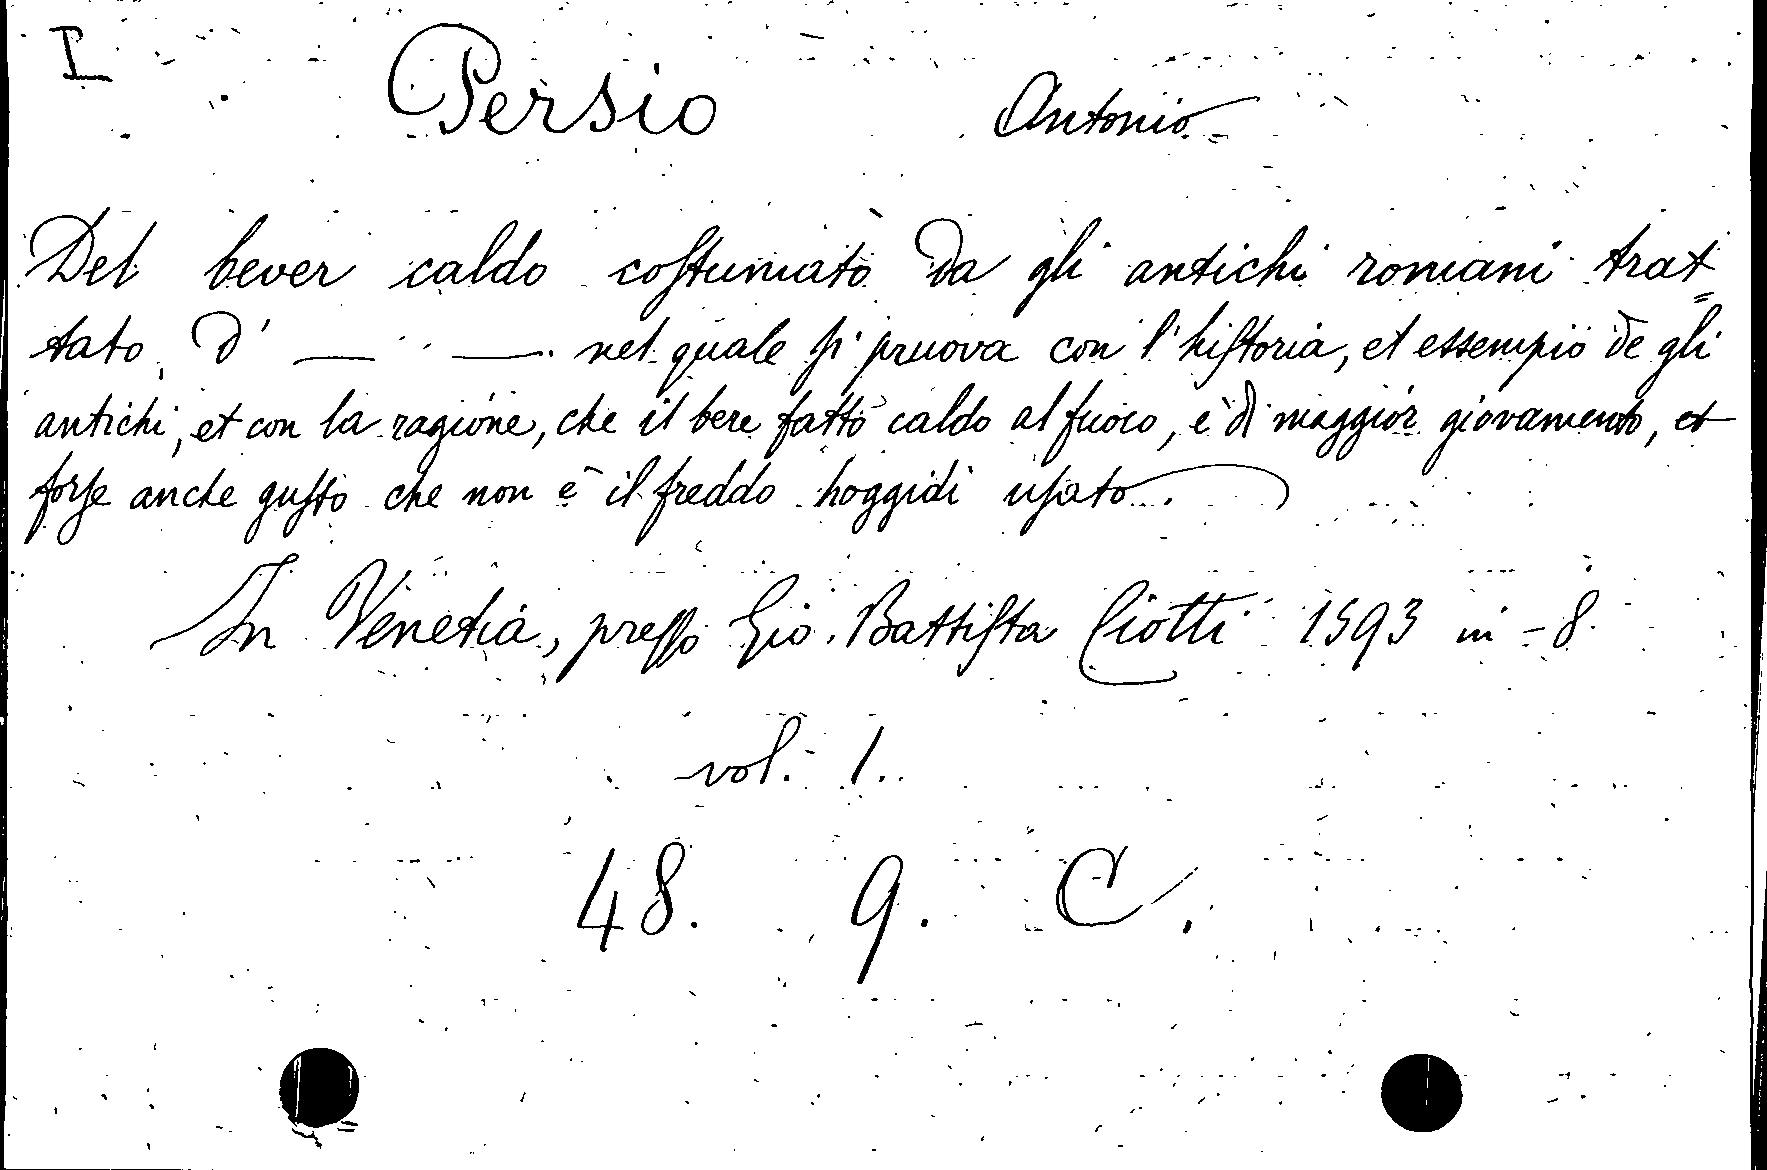 I Persio Antonio
Del bever caldo coſtumato da gli antichi romani trat=
tato, d' — — nel quale ſi pruova con l'hiſtoria, et essempio de gli
antichi, et con la ragione, che il bere fatto caldo al fuoco, è di maggior giovamento, et
forſe anche guſto che non è il freddo hoggidi uſato.
In Venetia, preſſo Gio. Battiſta Ciotti 1593 in-8.
vol. 1.
48. 9. C.